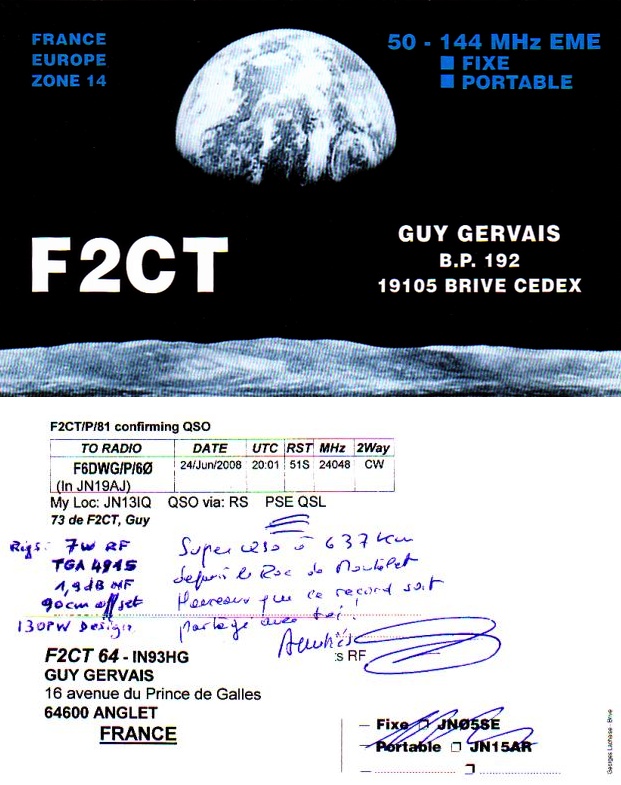 FRANCE
EUROPE
ZONE 14
50 - 144 MHz EME
FIXE
PORTABLE
F2CT
GUY GERVAIS
B.P. 192
19105 BRIVE CEDEX
F2CT/P/81 confirming QSO
TO RADIO DATE UTC RST MHz 2Way
F6DWG/P/6Ø 24/Jun/2008 20:01 51S 24048 CW
(In JN19AJ)
My Loc: JN13IQ QSO via: RS PSE QSL
73 de F2CT, Guy
Rigs: 7W RF
TGA 4915
1,9dB NF
90cm offset
130PW Design
Super QSO à 637km
depuis le Roc de Montalet
Heureux que ce record soit
partagé avec toi !
Amitiés
:s RF
F2CT 64 - IN93HG
GUY GERVAIS
16 avenue du Prince de Galles
64600 ANGLET
FRANCE
– Fixe JNØ5SE
– Portable JN15AR
Georges Lachaise - Brive